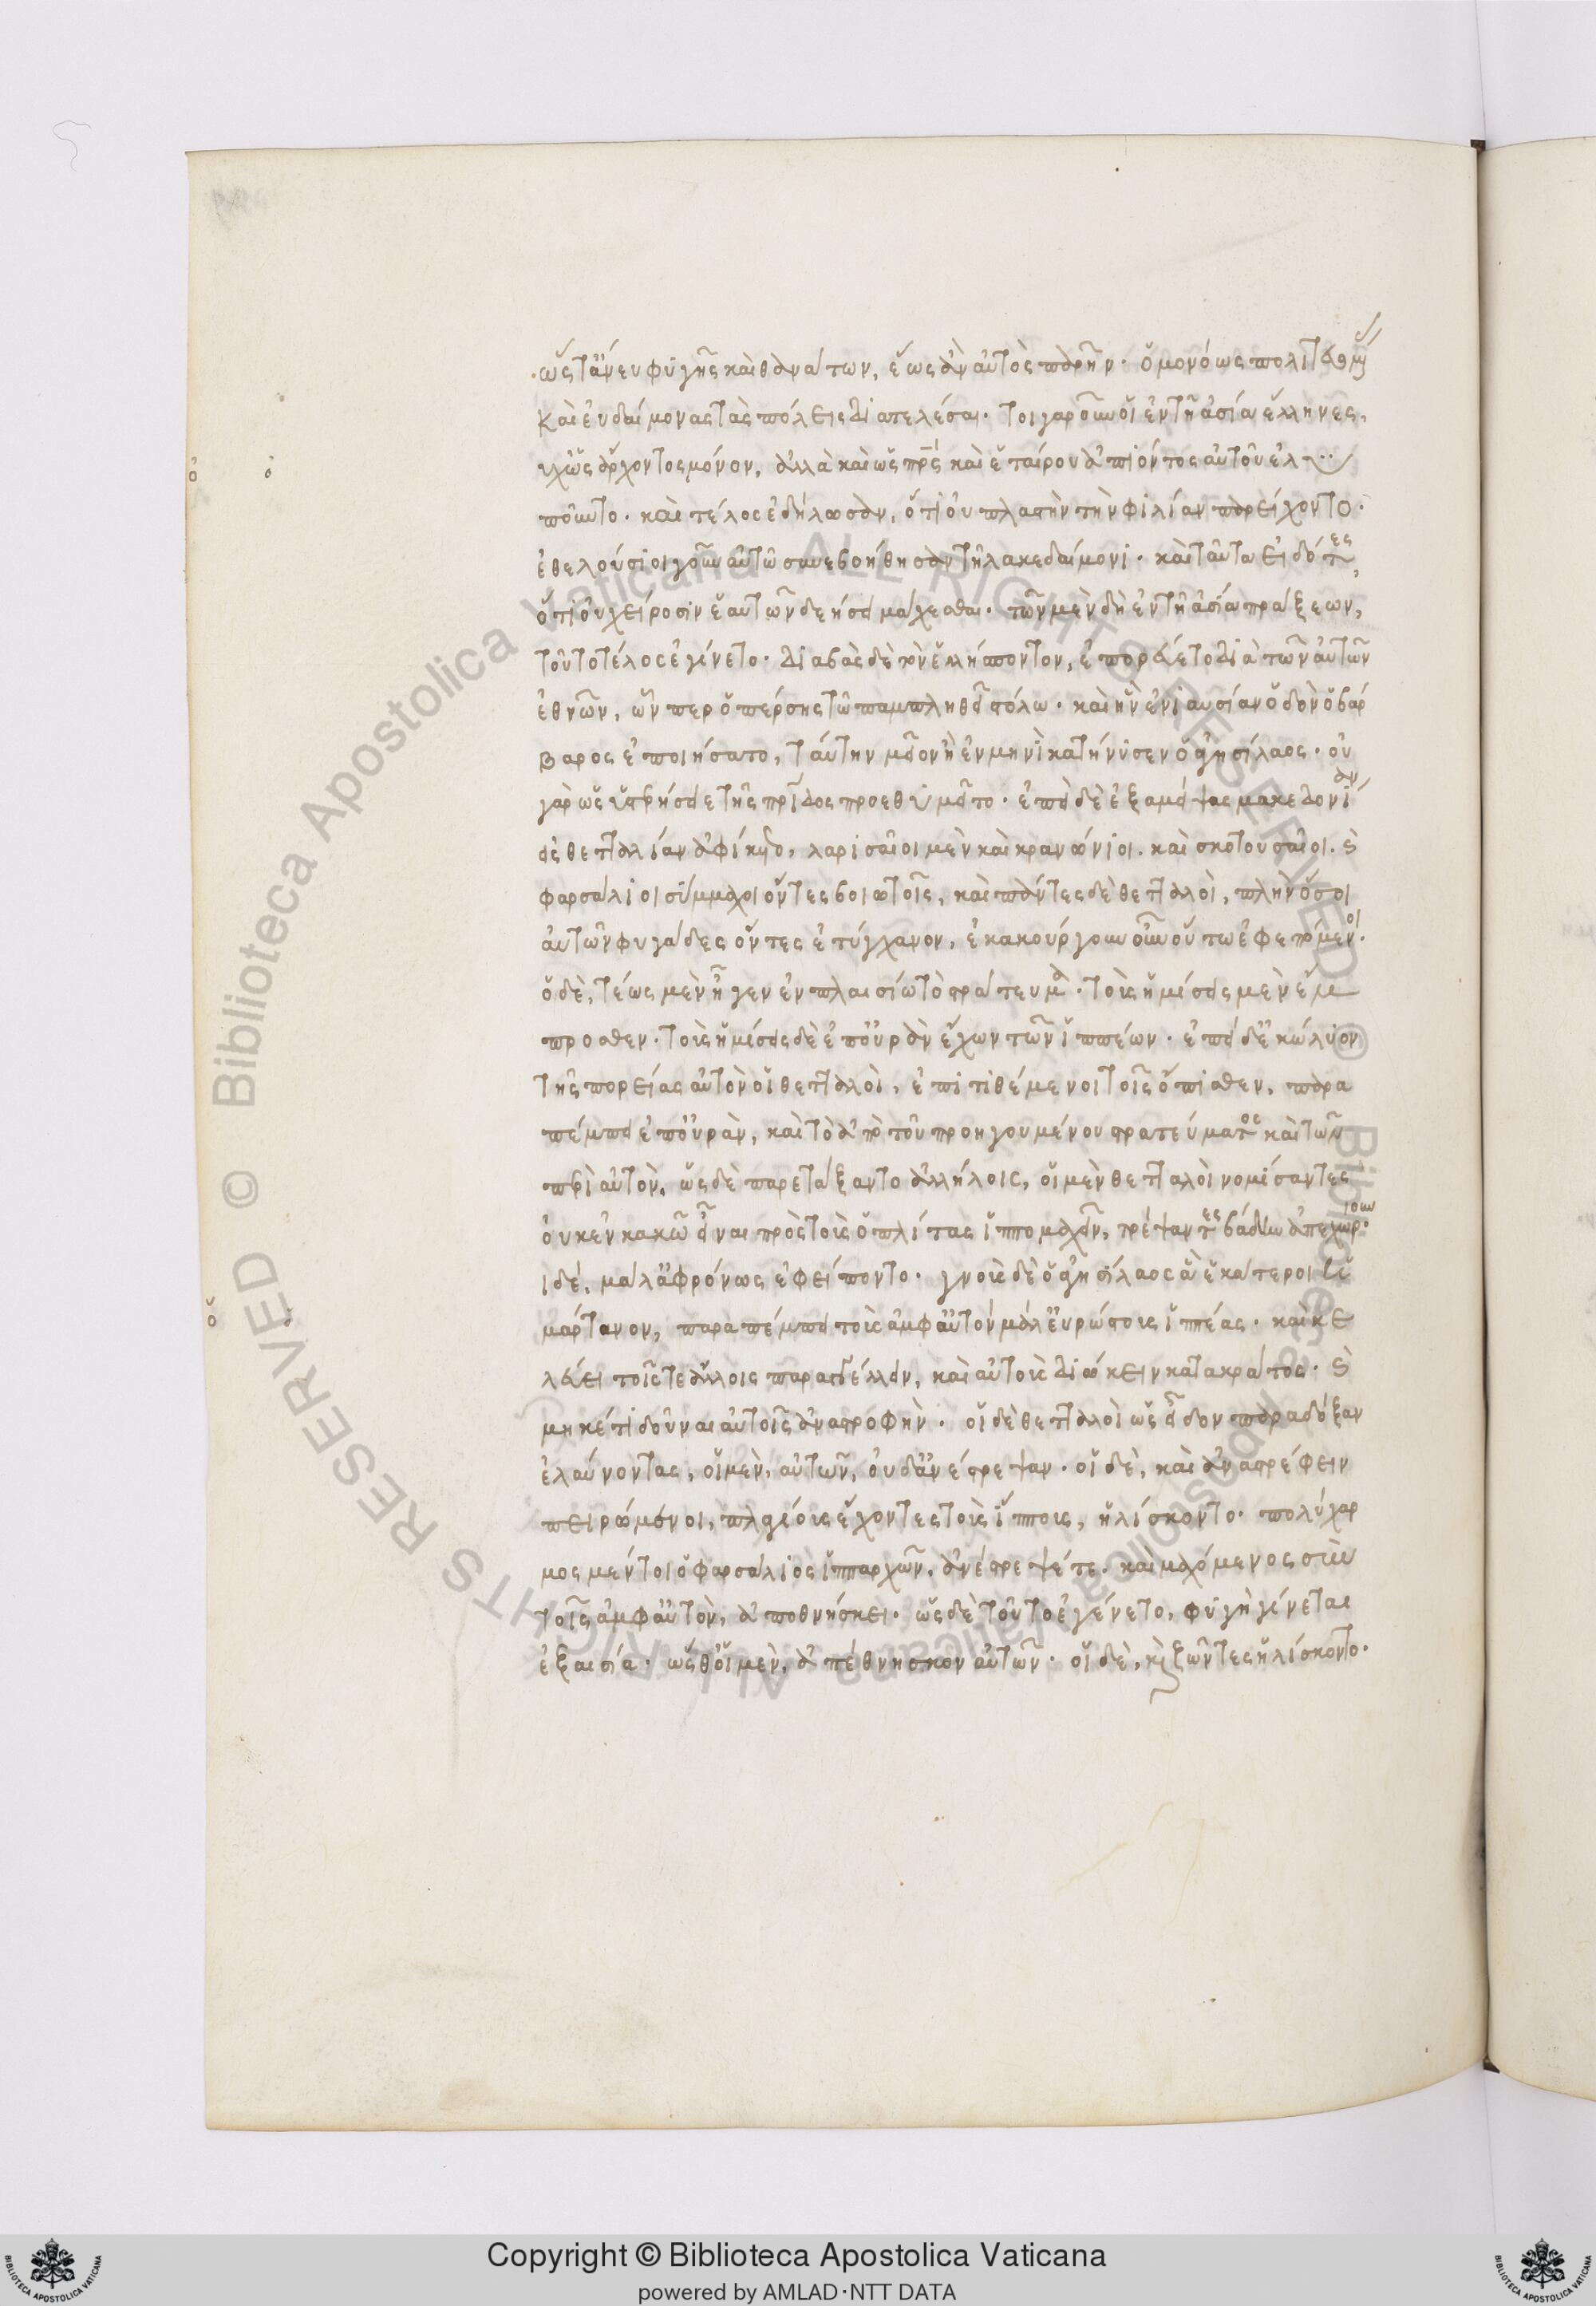 ὥστ' ἄνευ φυγῆς καὶ θανάτων, ἕως ἂν αὐτὸς παρῆν. ὁμονόως πολιτευομένας
καὶ εὐδαίμονας τὰς πόλεις διατελέσαι. τοιγαροῦν οἱ ἐν τῇ ἀσίᾳ ἕλληνες,
οὐχ ὡς ἄρχοντος μόνον, ἀλλὰ καὶ ὡς πρς καὶ ἑταίρου ἀπιόντος αὐτοῦ ἐλ
ποῦντο. καὶ τέλος ἐδήλωσαν, ὅτι οὐ πλαστὴν τὴν φιλίαν παρείχοντο.
ἐθελούσιοι γοῦν αὐτῷ συνεβοήθησαν τῇ λακεδαίμονι. καὶ ταῦτα εἰδότες,
ὅτι οὐ χείροσιν ἑαυτῶν δεήσει μάχεσθαι. τῶν μὲν δὴ ἐν τῇ ἀσίᾳ πράξεων,
τοῦτο τέλος ἐγένετο. διαβὰς δὲ τὸν ἑλλήσποντον, ἐπορεύετο διὰ τῶν αὐτῶν
ἐθνῶν, ὧνπερ ὁ πέρσης τῷ παμπληθεῖ στόλω. καὶ ἣν ἐνιαυσίαν ὁδὸν ὁ βάρ
βαρος ἐποιήσατο, ταύτην μεῖον ἢ ἐν μηνὶ κατήνυσεν ὁ ἀγησίλαος. οὐ
γὰρ ὡς ὑστερήσειε τῆς πρίδος προεθυμεῖτο. ἐπεὶ δὲ ἐξαμείψας μακεδονίαν
εἰς θετταλίαν ἀφίκετο, λαρισαῖοι μὲν καὶ κρανώνιοι. καὶ σκοτουσαῖοι. καὶ
φαρσάλιοι σύμμαχοι ὄντες βοιωτοῖς, καὶ πάντες δὲ θετταλοὶ, πλὴν ὅσοι
αὐτῶν φυγάδες ὄντες ἐτύγχανον, ἐκακούργουν οὖν οὕτω ἐφεπόμενοι.
ὁ δὲ, τέως μὲν ἦγεν ἐν πλαισίῳ τὸ στράτευμα. τοὺς ἡμίσεις μὲν ἔμ
προσθεν. τοὺς ἡμίσεις δὲ ἐπ' οὐρὰν ἔχων τῶν ἱππέων. ἐπεὶ δ' ἐκώλυον
τῆς πορείας αὐτὸν οἱ θετταλοὶ, ἐπιτιθέμενοι τοῖς ὄπισθεν, παρα
πέμπει ἐπ' οὐρὰν, καὶ τὸ ἀπὸ τοῦ προηγουμένου στρατεύματος καὶ τῶν
περὶ αὐτὸν. ὡς δὲ παρετάξαντο ἀλλήλοις, οἱ μὲν θετταλοὶ νομίσαντες
οὐκ ἐν καλῷ εἶναι πρὸς τοὺς ὁπλίτας ἱππομαχεῖν, τρέψαντες βάδην ἀπεχώρουν.
οἱ δὲ, μάλα σωφρόνως ἐφείποντο. γνοὺς δὲ ὁ ἀγησίλαος ἃ ἑκάτεροι ἡ
μάρτανον, παραπέμπει τοὺς ἀμφ' αὐτὸν μάλ' εὐρώστους ἱππέας. καὶ κε
λεύει τοῖς τε ἄλλοις παραγγέλλειν, καὶ αὐτοὺς διώκειν κατακράτος. καὶ
μηκέτι δοῦναι αὐτοῖς ἀναστροφήν. οἱ δὲ θετταλοὶ ὡς εἶδον παραδόξαν
ἐλαύνοντας, οἱ μὲν, αὐτῶν, οὐδ' ἀνέστρεψαν. οἱ δὲ, καὶ ἀναστρέφειν
πειρώμενοι, πλαγίους ἔχοντες τοὺς ἵππους, ἡλίσκοντο. πολύχαρ
μος μέντοι ὁ φαρσάλιος ἱππαρχῶν, ἀνέστρεψέ τε. καὶ μαχόμενος σὺν
τοῖς ἀμφ' αὐτὸν, ἀποθνήσκει. ὡς δὲ τοῦτο ἐγένετο, φυγὴ γίνεται
ἐξαισία. ὥσθ' οἱ μὲν, ἀπέθνησκον αὐτῶν. οἱ δὲ, καὶ ζῶντες ἡλίσκοντο.
Copyright © Biblioteca Apostolica Vaticana
powered by AMLAD·NTT DATA